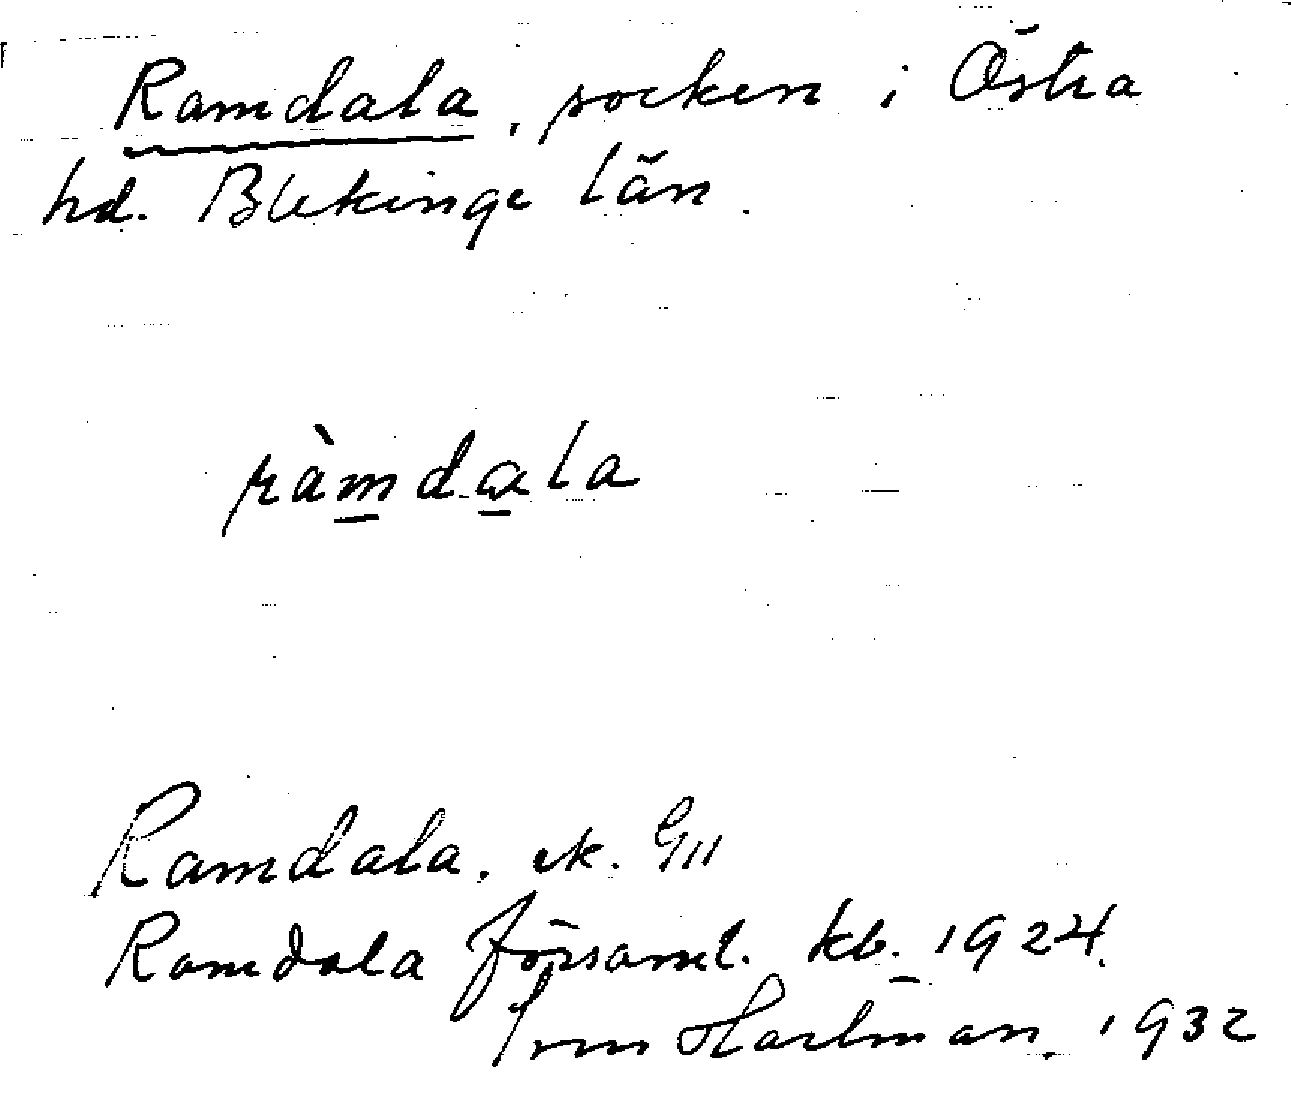 Ramdala, socken i Östra
hd. Blekinge län.
ràmdala
Ramdala. ek. G11
Ramdala församl. kb. 1924.
Hartman. 1932